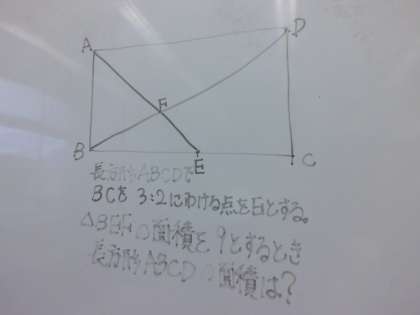 A
D
F
B
E
C
長方形ABCDで
BCを 3:2にわける点をEとする。
△BEFの面積を 9とするとき
長方形ABCDの面積は?